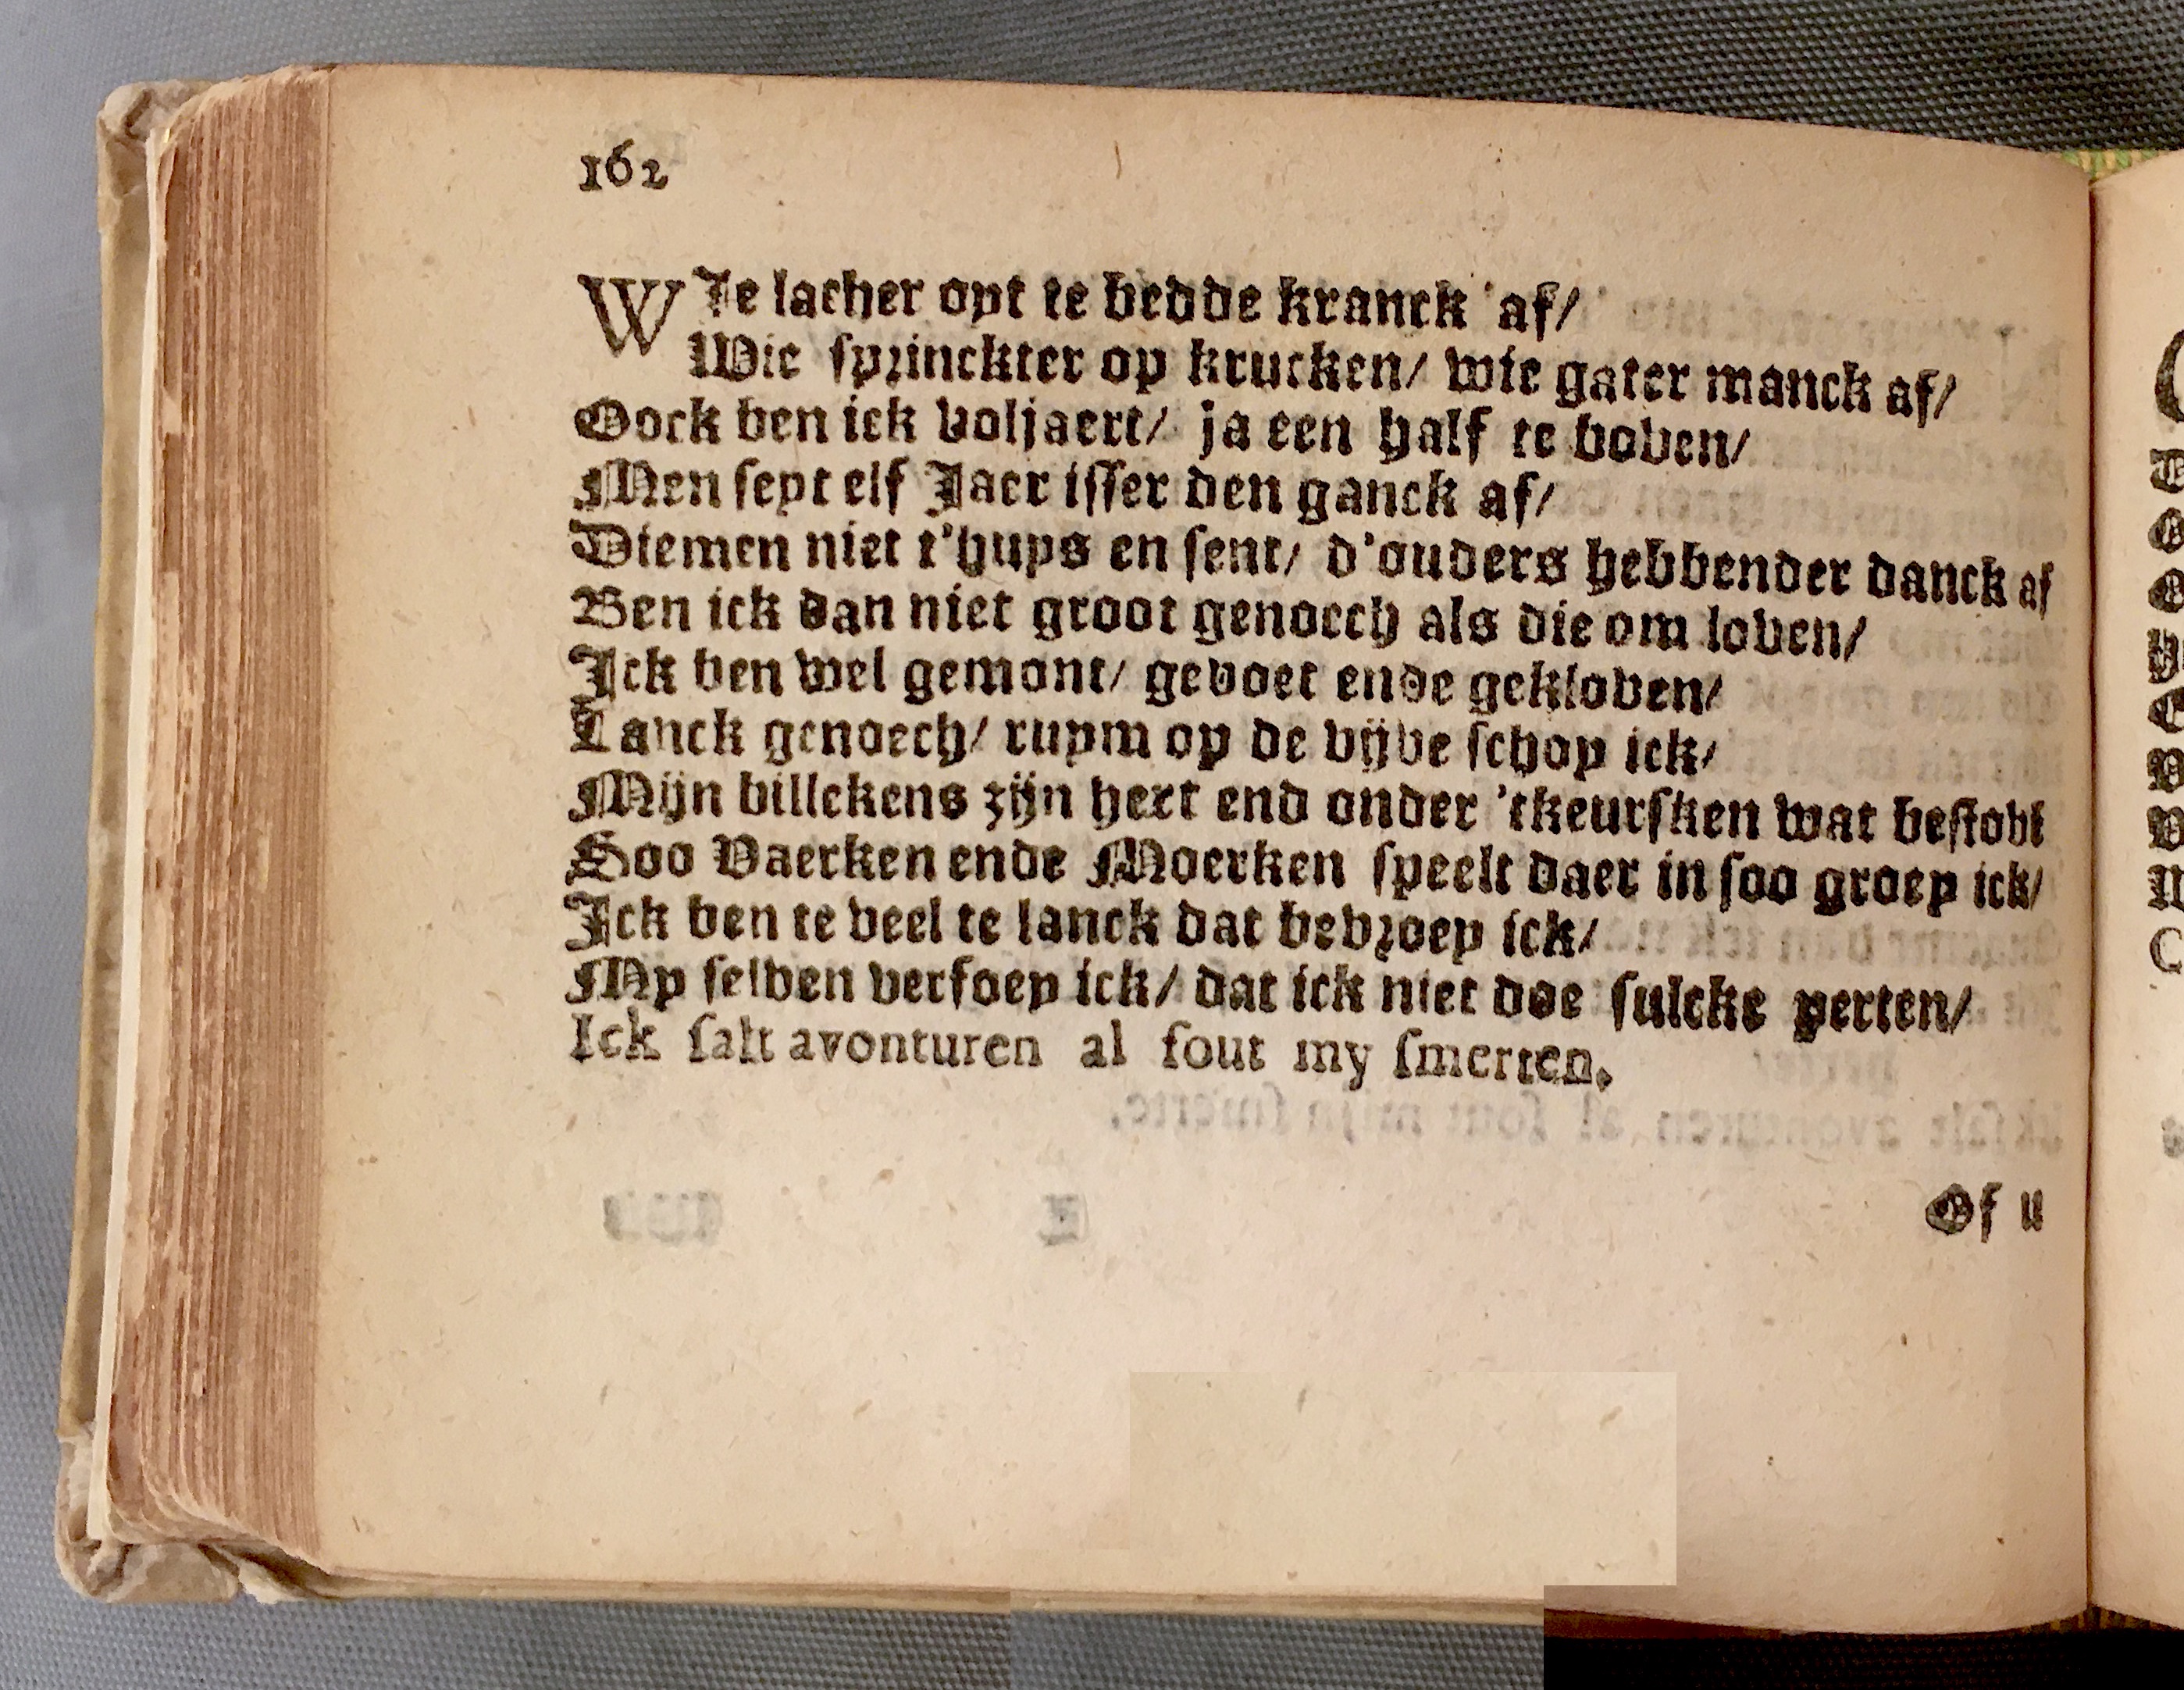 162
WIe lacher opt te bedde kranck af/
Wie sprinckter op krucken/ wie gater manck af/
Oock ben ick voljaert/ ja een half te boven/
Men seyt elf Jaer isser den ganck af/
Diemen niet t'huys en sent/ d'ouders hebbender danck af
Ben ick dan niet groot genoech als die om loven/
Ick ben wel gemont/ gevoet ende gekloven/
Lanck genoech/ ruym op de vijve schop ick/
Mijn billekens zijn hert end onder 'tkeursken wat bestobt
Soo Vaerken ende Moerken speelt daer in soo groey ick/
Ick ben te veel te lanck dat bevroey ick/
My selven verfoey ick/ dat ick niet doe sulcke perten/
Ick salt avonturen al sout my smerten.
Of u